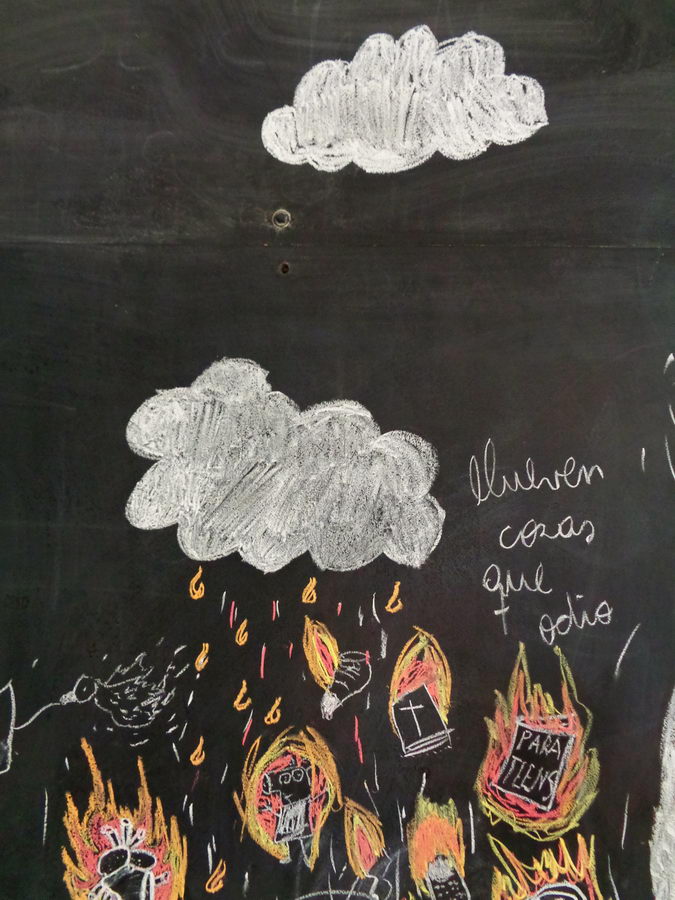 llueven
cosas
que
odio
PARA
TEENS